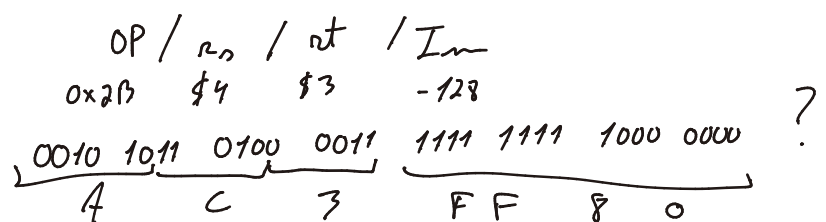 OP / rs / rt / Im
0x2B $4 $3 -128
0010 1011 0100 0011 1111 1111 1000 0000 ?
A C 3 F F 8 0